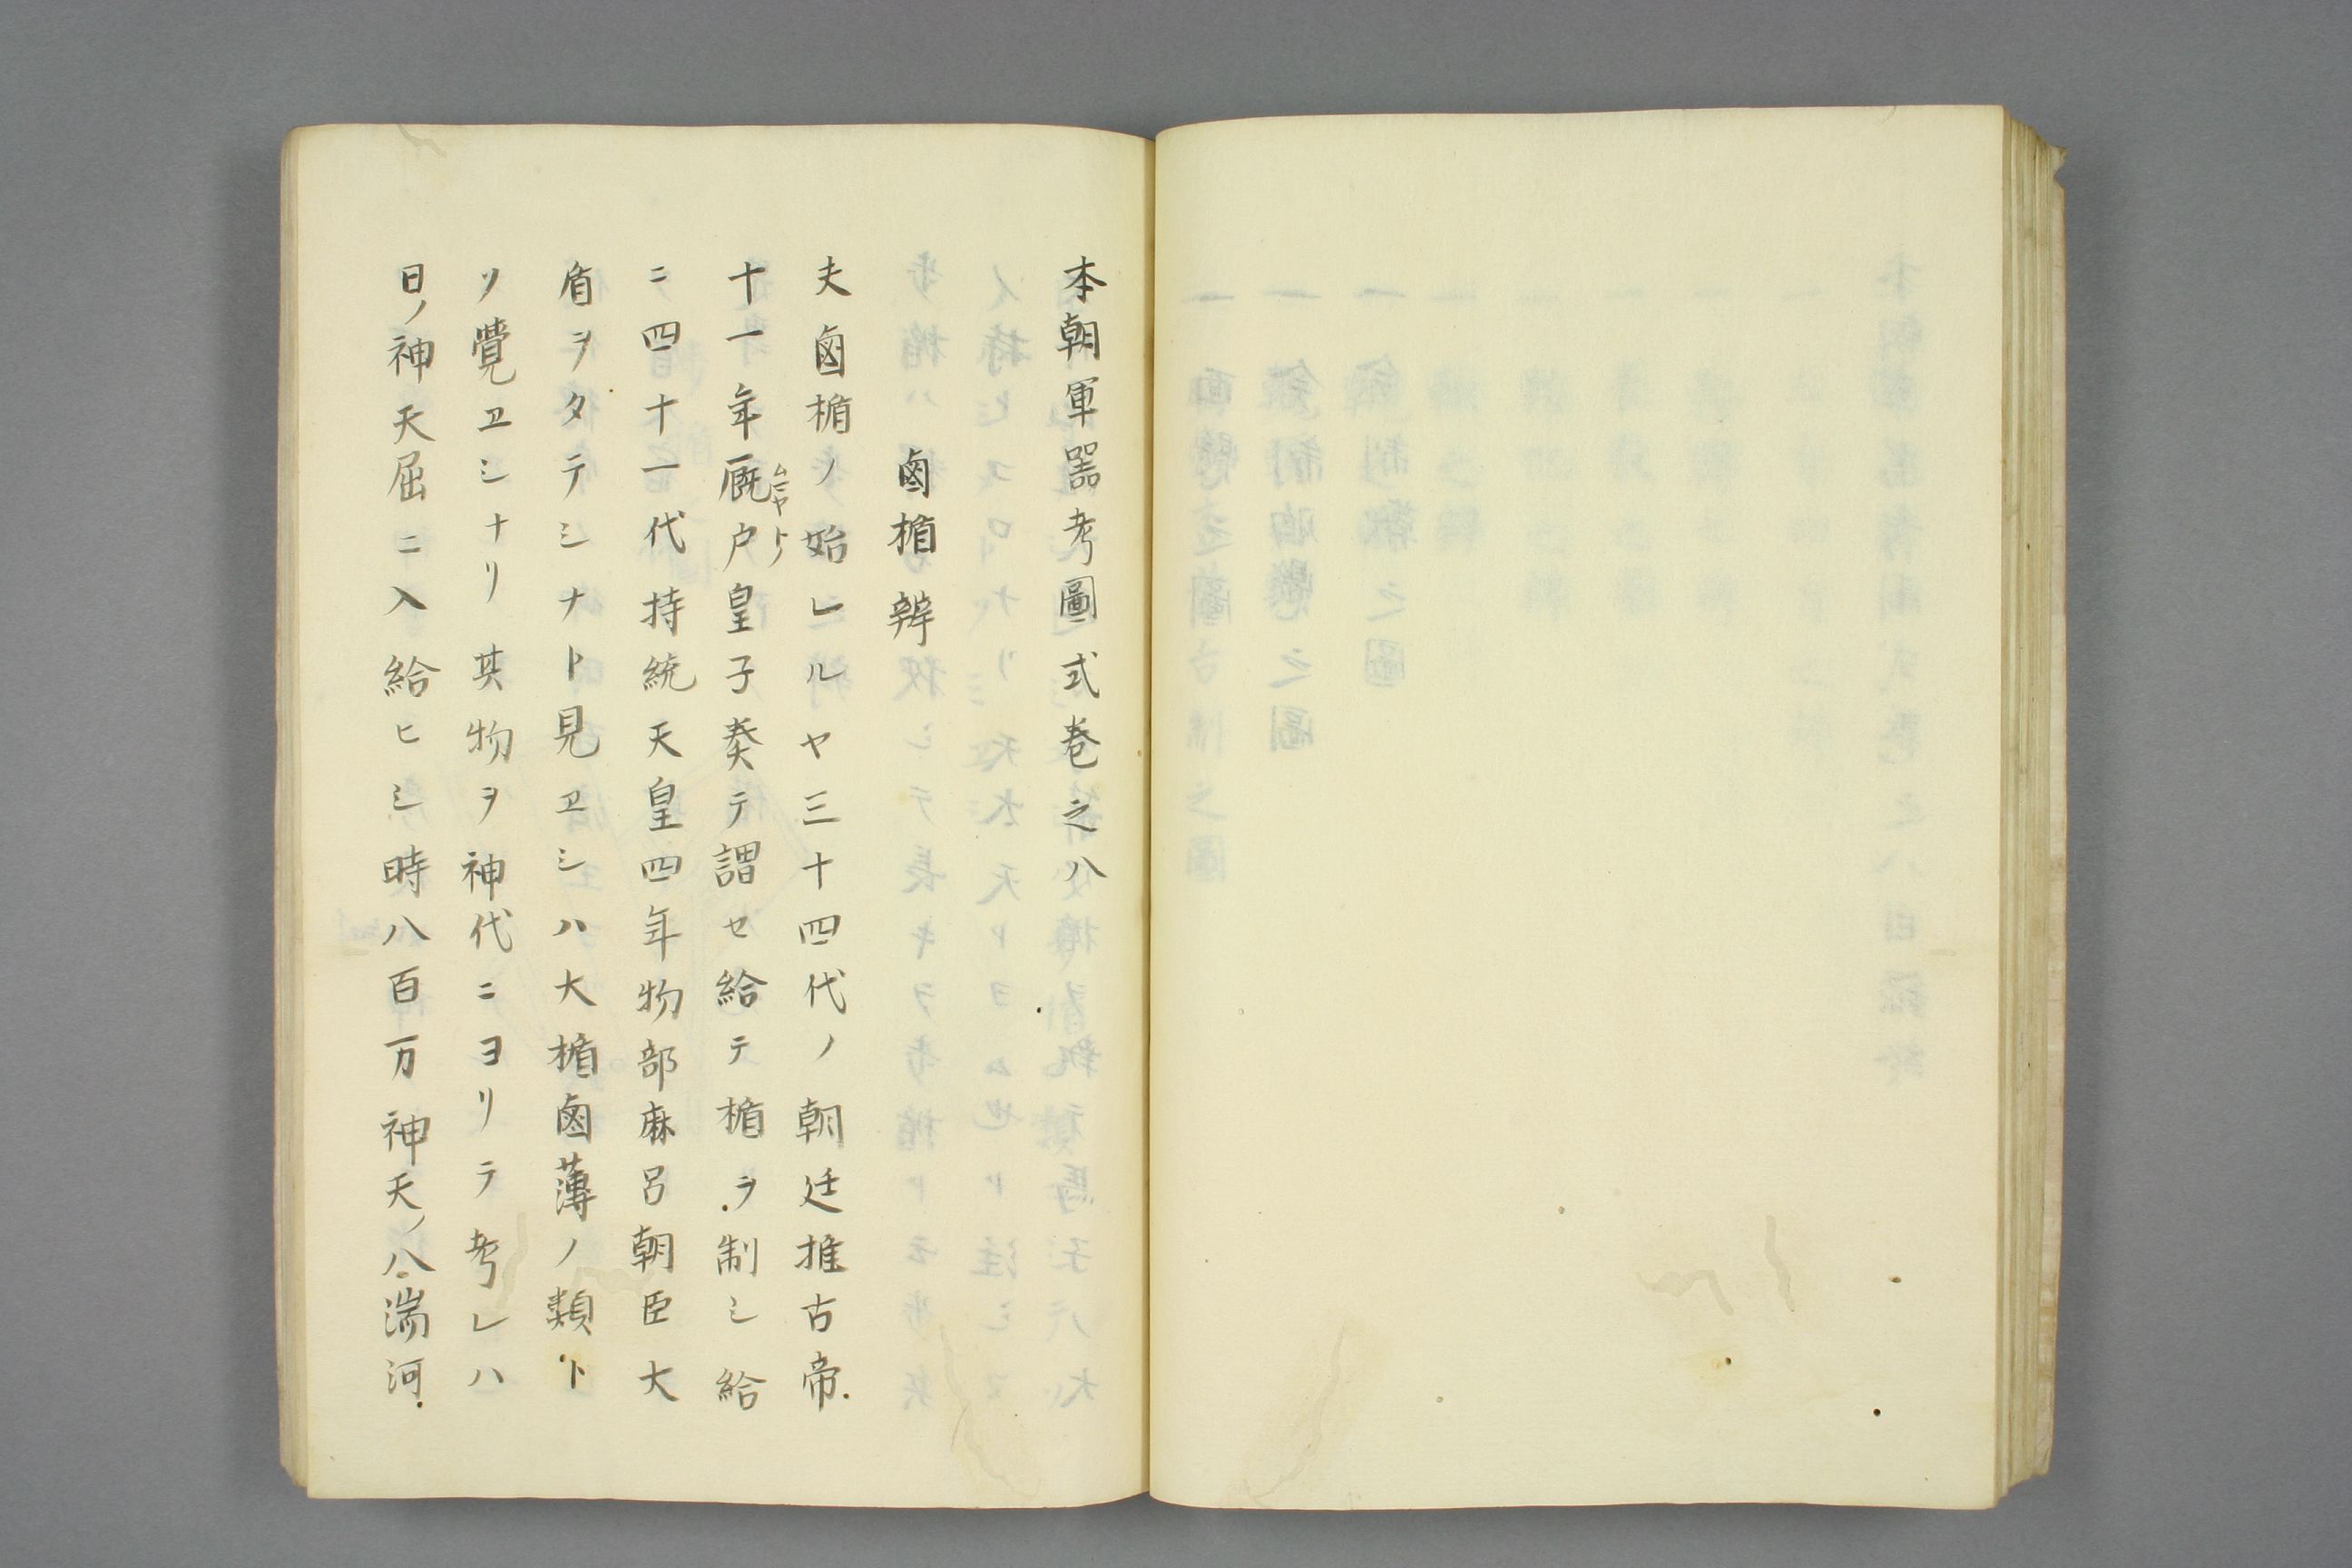 本朝軍器考圖式巻之八
鹵楯辨
夫鹵楯ノ始レルヤ三十四代ノ朝廷推古帝
十一年厩戸皇子奏テ謂セ給テ楯ヲ制シ給
ムマヤト
ニ四十一代持統天皇四年物部麻呂朝臣大
盾ヲタテシナト見ヱシハ大楯鹵薄ノ類ト
ソ覺ヱシナリ其物ヲ神代ニヨリテ考レハ
日ノ神天屈ニ入給ヒシ時八百万神天ノ八湍河